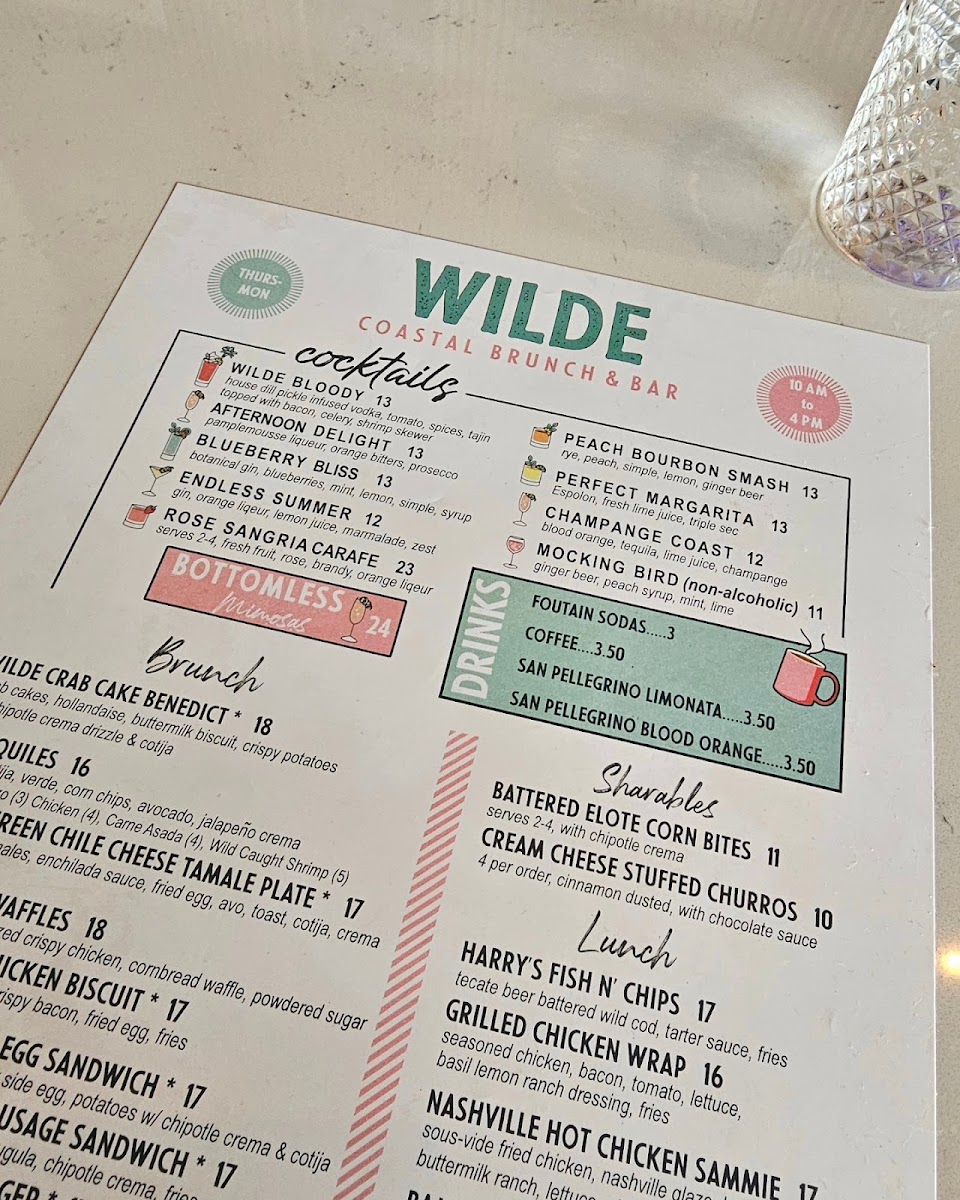 THURS-
MON
WILDE
COASTAL BRUNCH & BAR
10 AM
to
4 PM
cocktails
WILDE BLOODY 13
house dill pickle infused vodka, tomato, spices, tajin
topped with bacon, celery, shrimp skewer
AFTERNOON DELIGHT 13
pamplemousse liqueur, orange bitters, prosecco
BLUEBERRY BLISS 13
botanical gin, blueberries, mint, lemon, simple, syrup
ENDLESS SUMMER 12
gin, orange liqeur, lemon juice, marmalade, zest
ROSE SANGRIA CARAFE 23
serves 2-4, fresh fruit, rose, brandy, orange liqeur
PEACH BOURBON SMASH 13
rye, peach, simple, lemon, ginger beer
PERFECT MARGARITA 13
Espolon, fresh lime juice, triple sec
CHAMPANGE COAST 12
blood orange, tequila, lime juice, champange
MOCKING BIRD (non-alcoholic) 11
ginger beer, peach syrup, mint, lime
BOTTOMLESS
Mimosas 24
DRINKS
FOUTAIN SODAS.....3
COFFEE....3.50
SAN PELLEGRINO LIMONATA.....3.50
SAN PELLEGRINO BLOOD ORANGE.....3.50
Brunch
WILDE CRAB CAKE BENEDICT * 18
cakes, hollandaise, buttermilk biscuit, crispy potatoes
crema drizzle & cotija
16
verde, corn chips, avocado, jalapeño crema
(3) Chicken (4), Carne Asada (4), Wild Caught Shrimp (5)
CHILE CHEESE TAMALE PLATE * 17
enchilada sauce, fried egg, avo, toast, cotija, crema
WAFFLES 18
crispy chicken, cornbread waffle, powdered sugar
BISCUIT * 17
crispy bacon, fried egg, fries
EGG SANDWICH * 17
side egg, potatoes w/ chipotle crema & cotija
SANDWICH * 17
chipotle crema, fries
Sharables
BATTERED ELOTE CORN BITES 11
serves 2-4, with chipotle crema
CREAM CHEESE STUFFED CHURROS 10
4 per order, cinnamon dusted, with chocolate sauce
Lunch
HARRY'S FISH N' CHIPS 17
tecate beer battered wild cod, tarter sauce, fries
GRILLED CHICKEN WRAP 16
seasoned chicken, bacon, tomato, lettuce,
basil lemon ranch dressing, fries
NASHVILLE HOT CHICKEN SAMMIE 17
sous-vide fried chicken, nashville
buttermilk ranch,